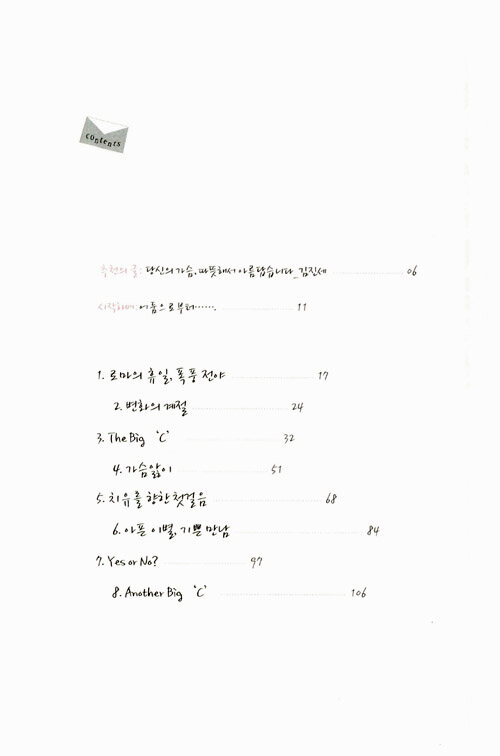 contents
추천의 글: 당신의 가슴, 따뜻해서 아름답습니다_김진세 06
시작하며: 어둠으로부터……. 11
1. 로마의 휴일, 폭풍 전야 17
2. 변화의 계절 24
3. The Big ‘C’ 32
4. 가슴앓이 51
5. 치유를 향한 첫걸음 68
6. 아픈 이별, 기쁜 만남 84
7. Yes or No? 97
8. Another Big ‘C’ 106